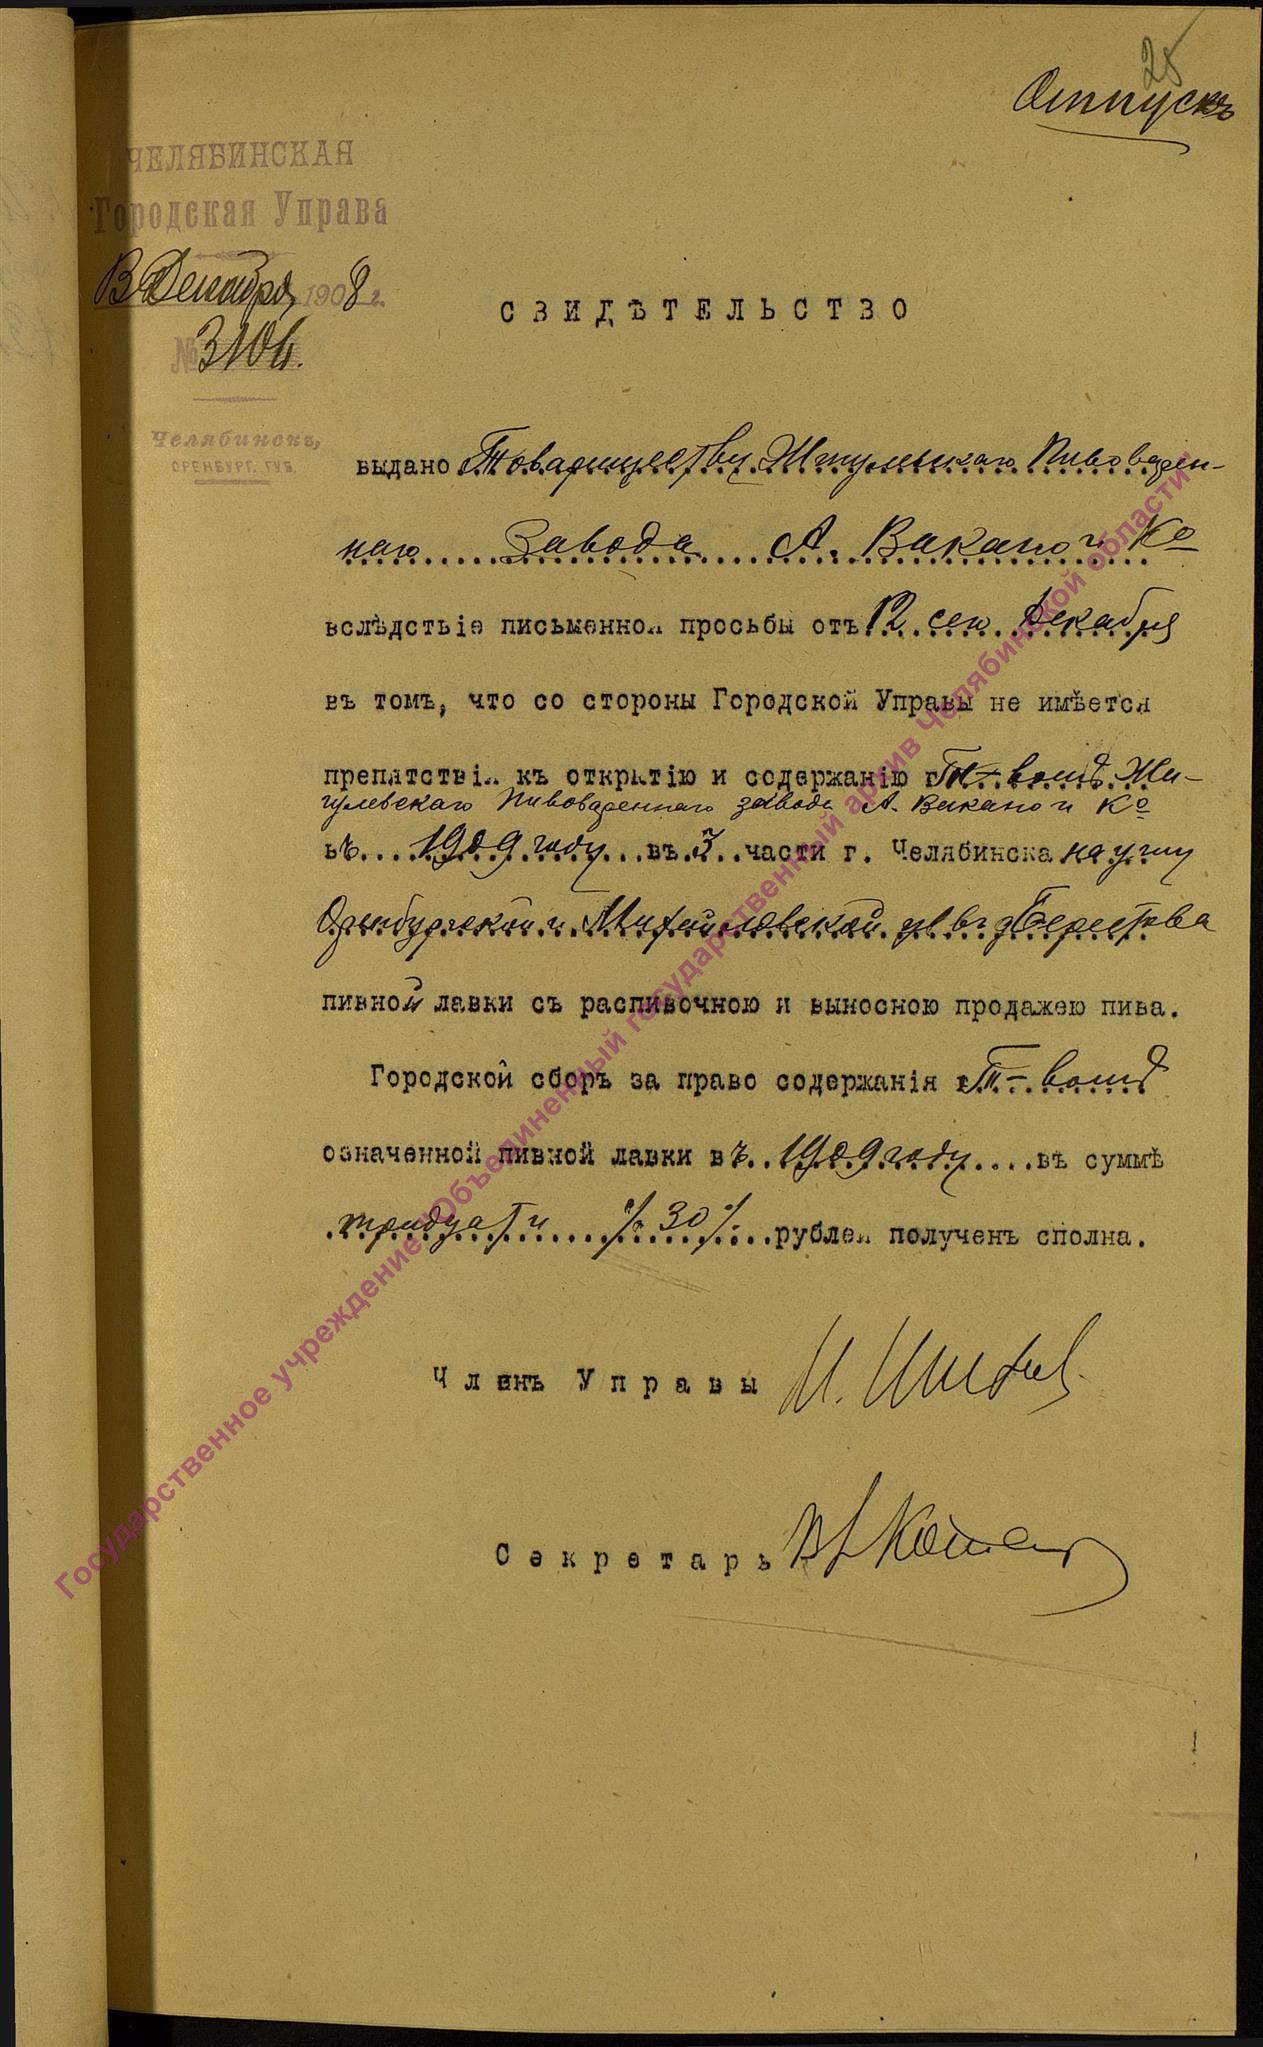 25
Отпускъ
ЧЕЛЯБИНСКАЯ
Городская Управа
13 Декабря 1908 г.
№ 3106.
Челябинскъ,
ОРЕНБУРГ. ГУБ.
СВИДѢТЕЛЬСТВО
выдано Товариществу Жигулевскаго Пивоварен-
наго Завода А. Вакано и Ко
вслѣдствіе письменной просьбы отъ 12 сего Декабря
въ томъ, что со стороны Городской Управы не имѣется
препятствія къ открытію и содержанію Т-вомъ Жи-
гулевскаго Пивовареннаго завода А. Вакано и Ко
въ 1909 году въ 3 части г. Челябинска на углу
Оренбургской и Михайловской ул въ д Берестова
пивной лавки съ распивочною и выносною продажею пива.
Городской сборъ за право содержанія Т-вомъ
означенной пивной лавки въ 1909 году въ суммѣ
тридцати ./. 30 ./. рублей полученъ сполна.
Членъ Управы И.
Секретарь
Государственное учреждение "Объединенный государственный архив Челябинской области"